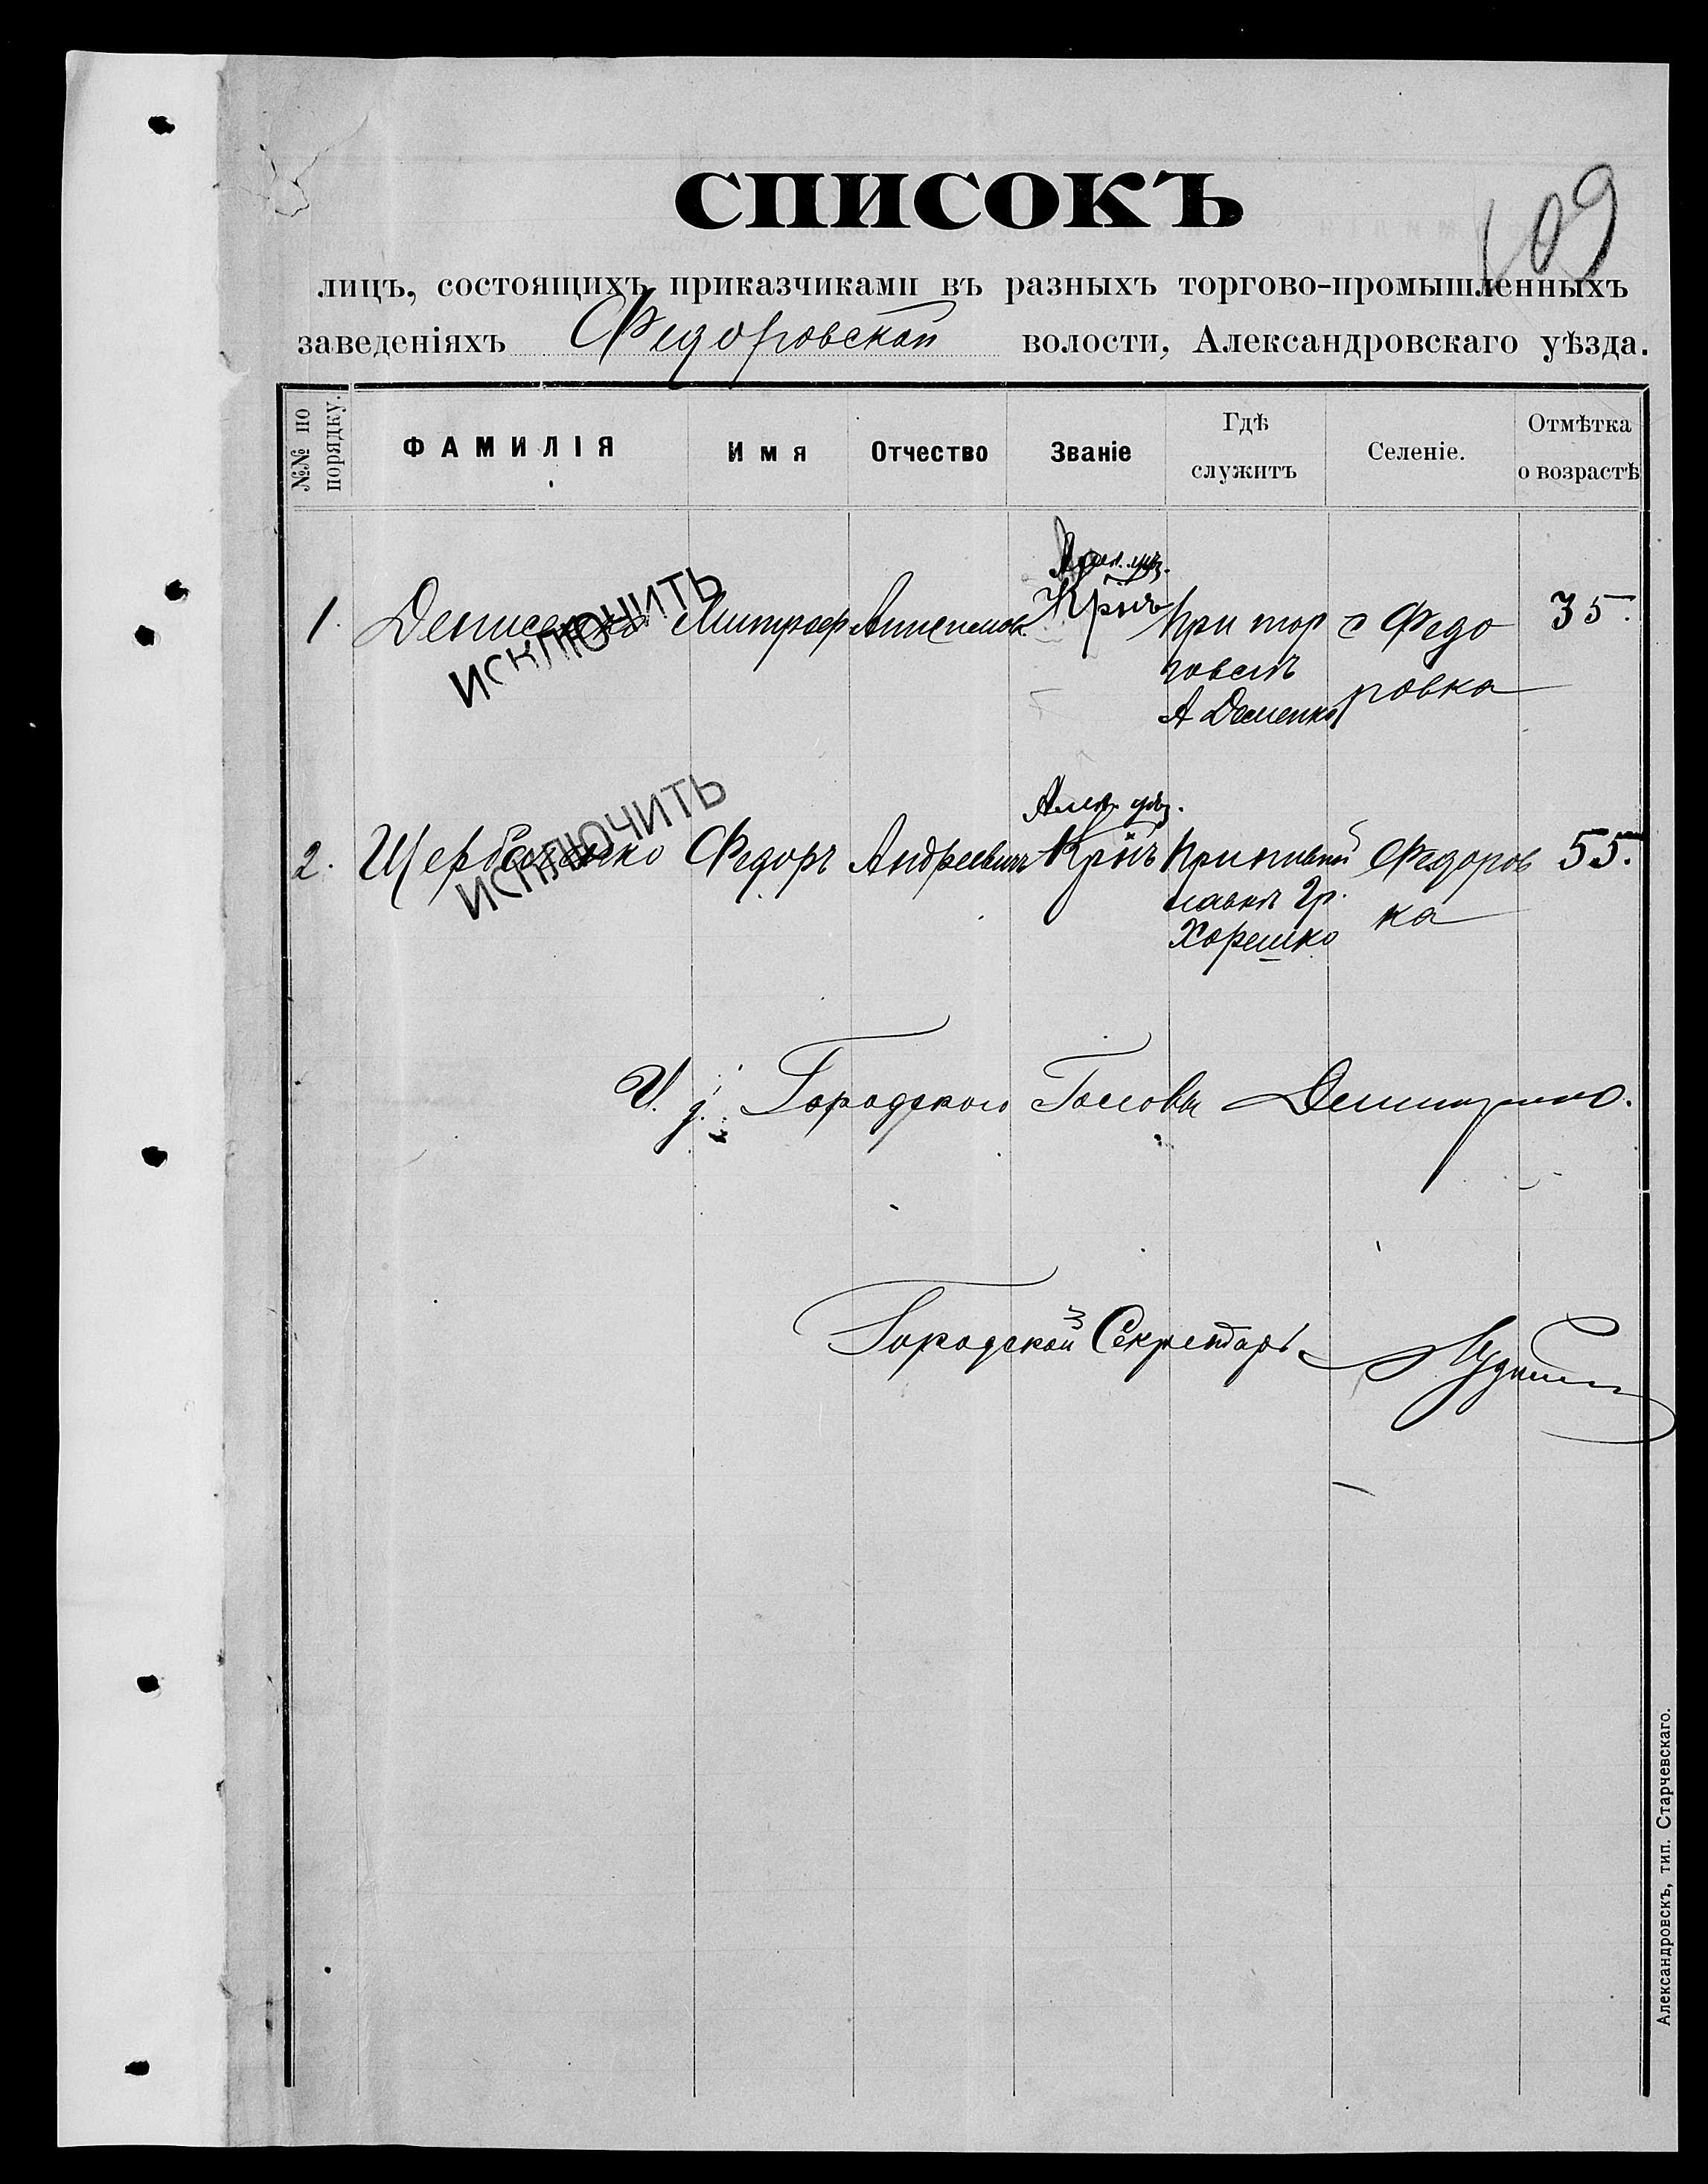 109
СПИСОКЪ
лицъ, состоящихъ приказчиками въ разныхъ торгово-промышленныхъ
заведеніяхъ Федоровской волости, Александровскаго уѣзда.
№№ по порядку.
ФАМИЛІЯ
Имя
Отчество
Званіе
Гдѣ служитъ
Селеніе.
Отмѣтка о возрастѣ
Алек. уѣз.
1. Денисенко Митроф Крнъ При тор с Федо 35.
ИСКЛЮЧИТЬ
говлѣ ровка
А Деменко
Алек. уѣз.
2. Щербаченко Федоръ Андреевичъ Крнъ При пивной Федоров 55.
ИСКЛЮЧИТЬ
лавкѣ Гр. ка
Хорешко
И. д. Городского Головы
Городской Секретарь
Александровскъ, тип. Старчевскаго.